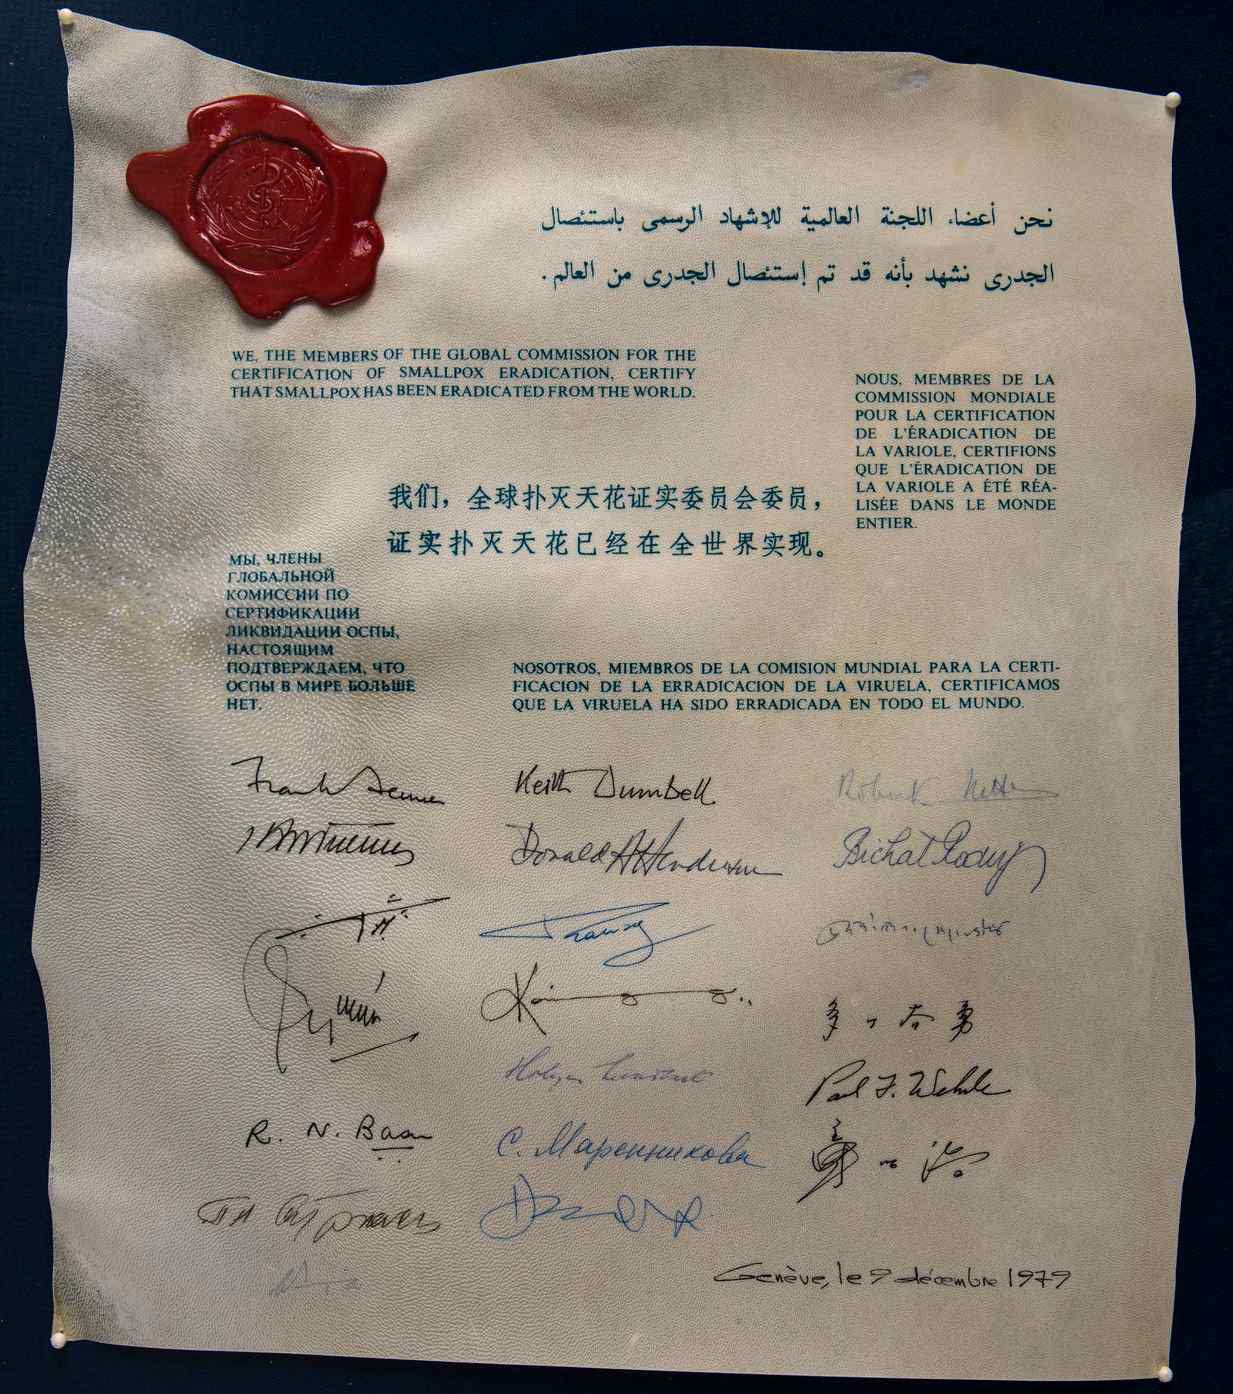 نحن أعضاء اللجنة العالمية للإشهاد الرسمى باستئصال
الجدرى نشهد بأنه قد تم إستئصال الجدرى من العالم.
WE, THE MEMBERS OF THE GLOBAL COMMISSION FOR THE
CERTIFICATION OF SMALLPOX ERADICATION, CERTIFY
THAT SMALLPOX HAS BEEN ERADICATED FROM THE WORLD.
NOUS, MEMBRES DE LA
COMMISSION MONDIALE
POUR LA CERTIFICATION
DE L'ÉRADICATION DE
LA VARIOLE, CERTIFIONS
QUE L'ÉRADICATION DE
LA VARIOLE A ÉTÉ RÉA-
LISÉE DANS LE MONDE
ENTIER.
我们，全球扑灭天花证实委员会委员，
证实扑灭天花已经在全世界实现。
МЫ, ЧЛЕНЫ
ГЛОБАЛЬНОЙ
КОМИССИИ ПО
СЕРТИФИКАЦИИ
ЛИКВИДАЦИИ ОСПЫ,
НАСТОЯЩИМ
ПОДТВЕРЖДАЕМ, ЧТО
ОСПЫ В МИРЕ БОЛЬШЕ
НЕТ.
NOSOTROS, MIEMBROS DE LA COMISION MUNDIAL PARA LA CERTI-
FICACION DE LA ERRADICACION DE LA VIRUELA, CERTIFICAMOS
QUE LA VIRUELA HA SIDO ERRADICADA EN TODO EL MUNDO.
Frank Fenner
Keith Dumbell
Robert Netter
Donald A Henderson
Bichat Rodrig
Paul F. Wehrle
R. N. Basu
С. Маренникова
Genève, le 9 décembre 1979